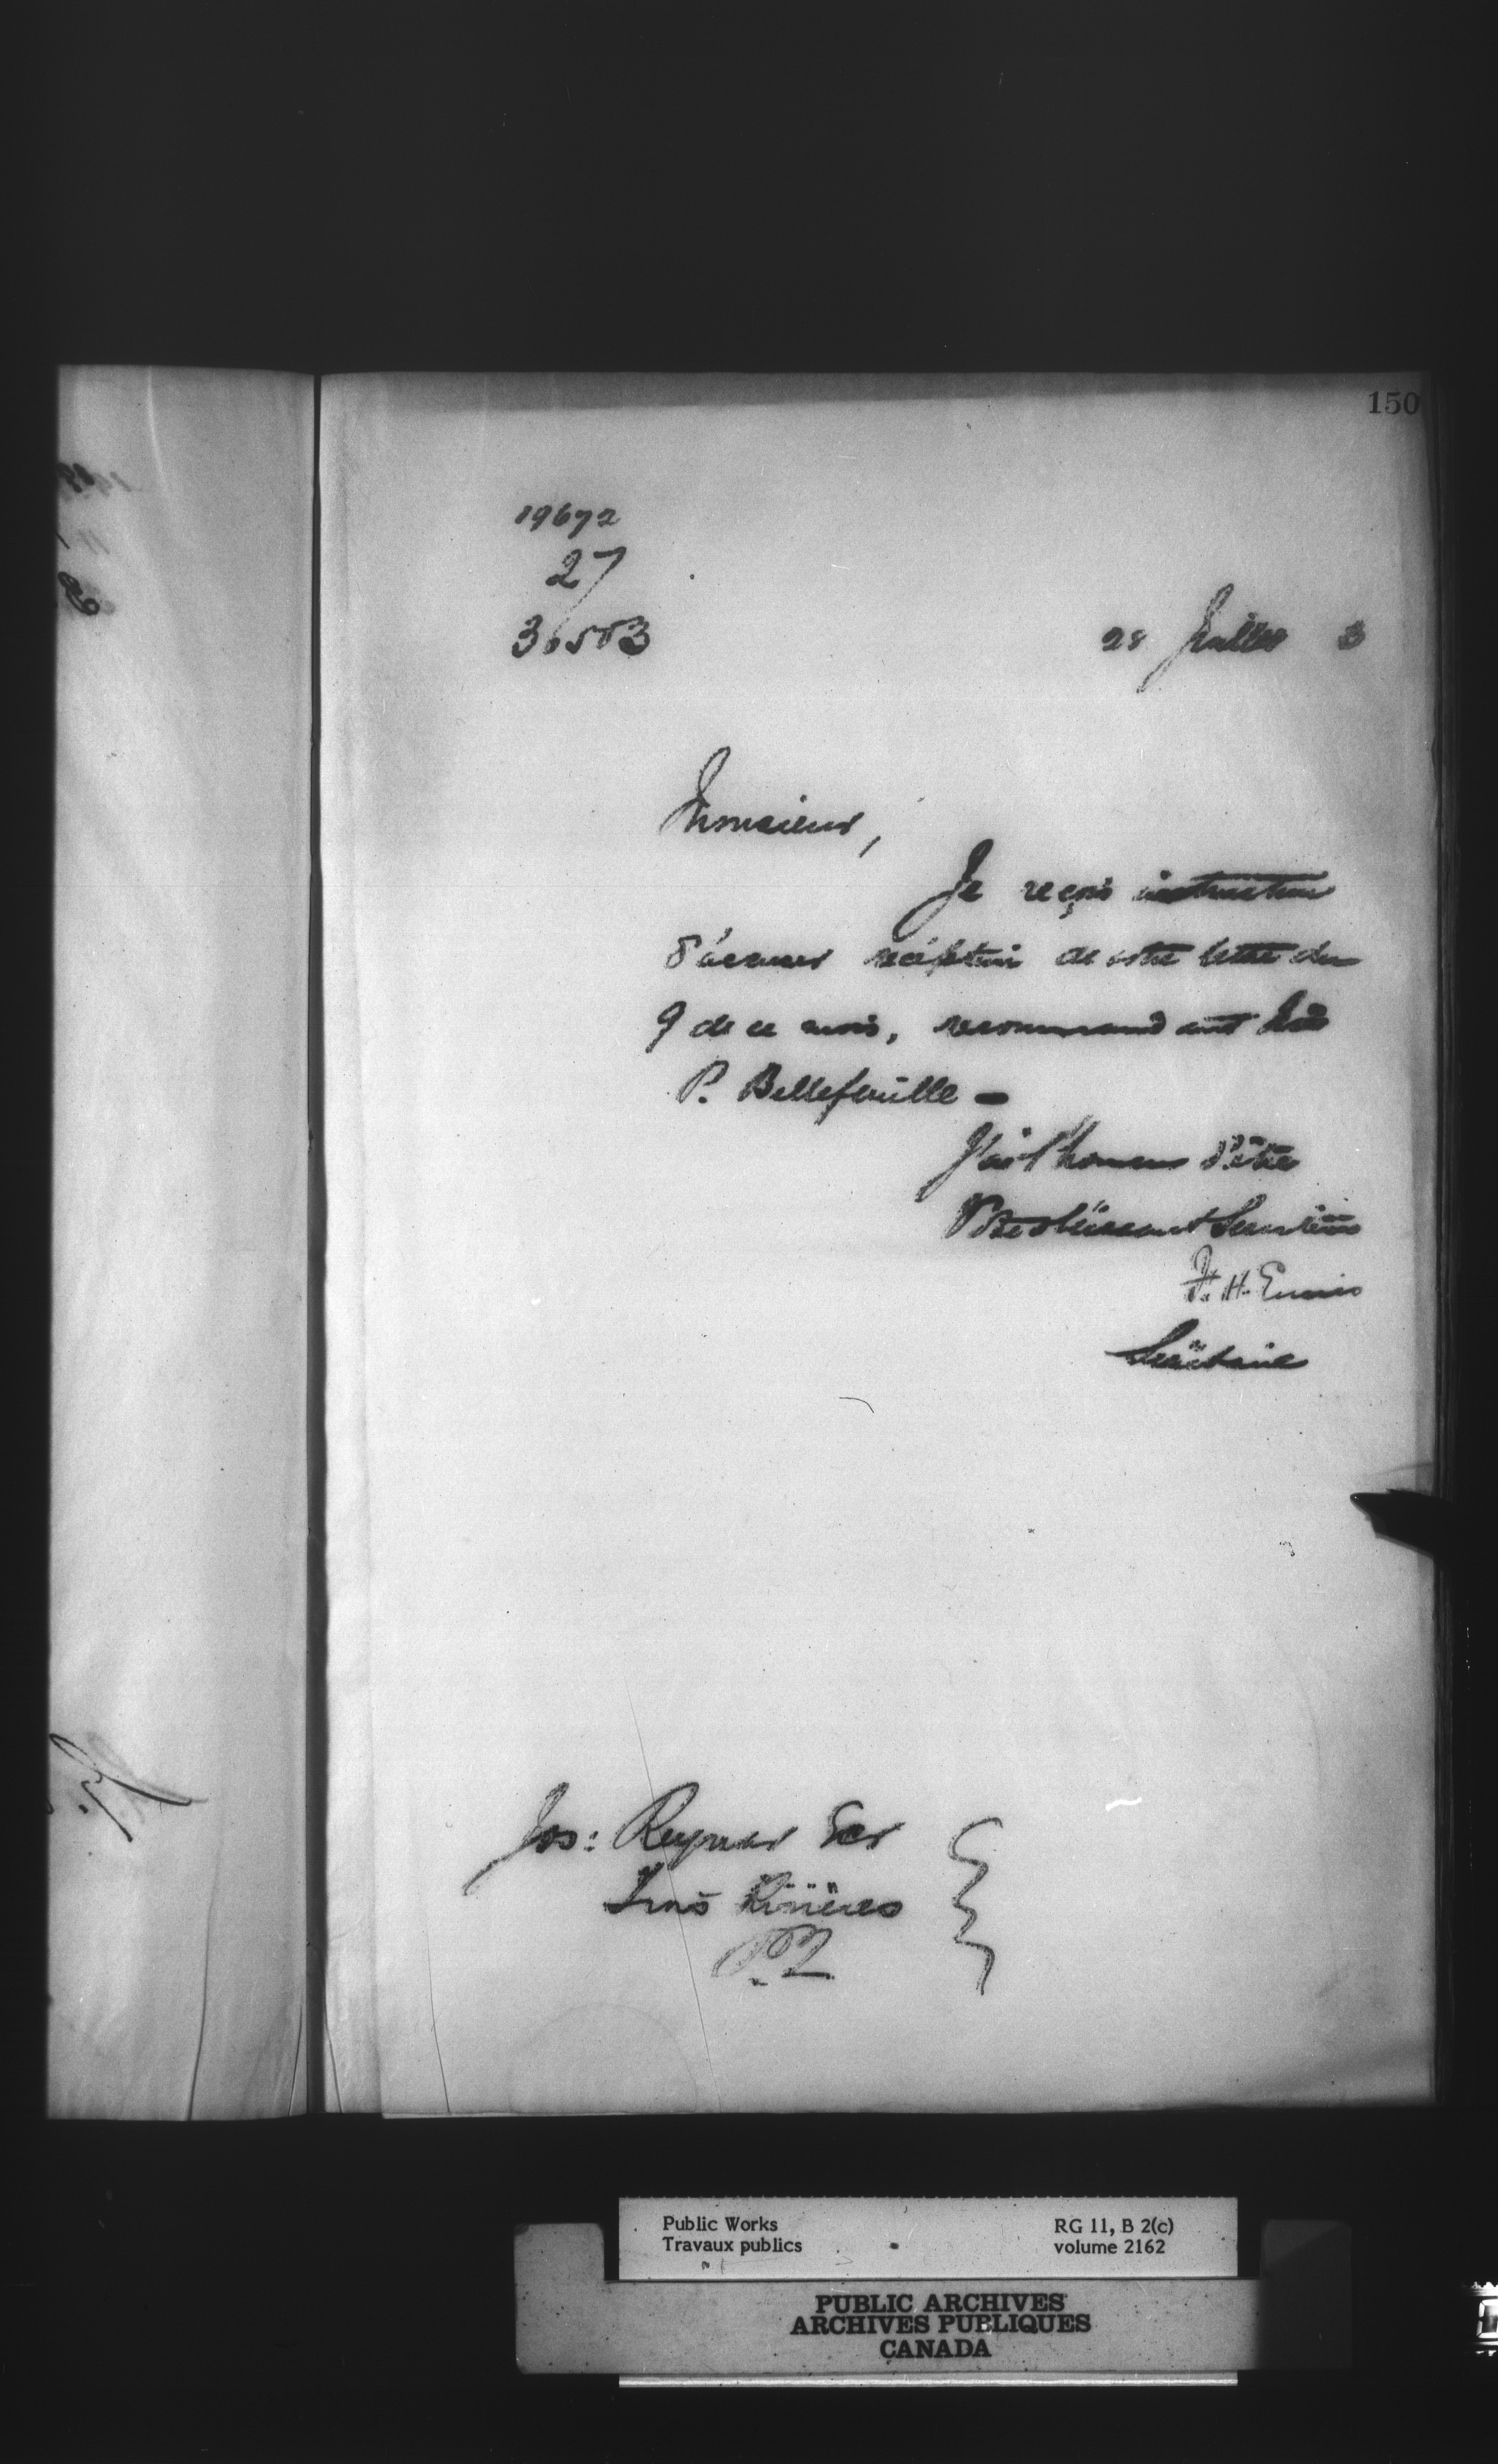 150
19672
27
36583
28 Juillet 3
Monsieur,
Je reçois instruction
d'accuser réception de votre lettre du
9 de ce mois, recommandant
P. Bellefeuille -
J'ai l'honneur d'être
Votre obéissant Serviteur
F. H. Ennis
Secrétaire
Jos: Reynar Ecr
Trois Rivières
P.Q
Public Works
Travaux publics
RG 11, B 2(c)
volume 2162
PUBLIC ARCHIVES
ARCHIVES PUBLIQUES
CANADA